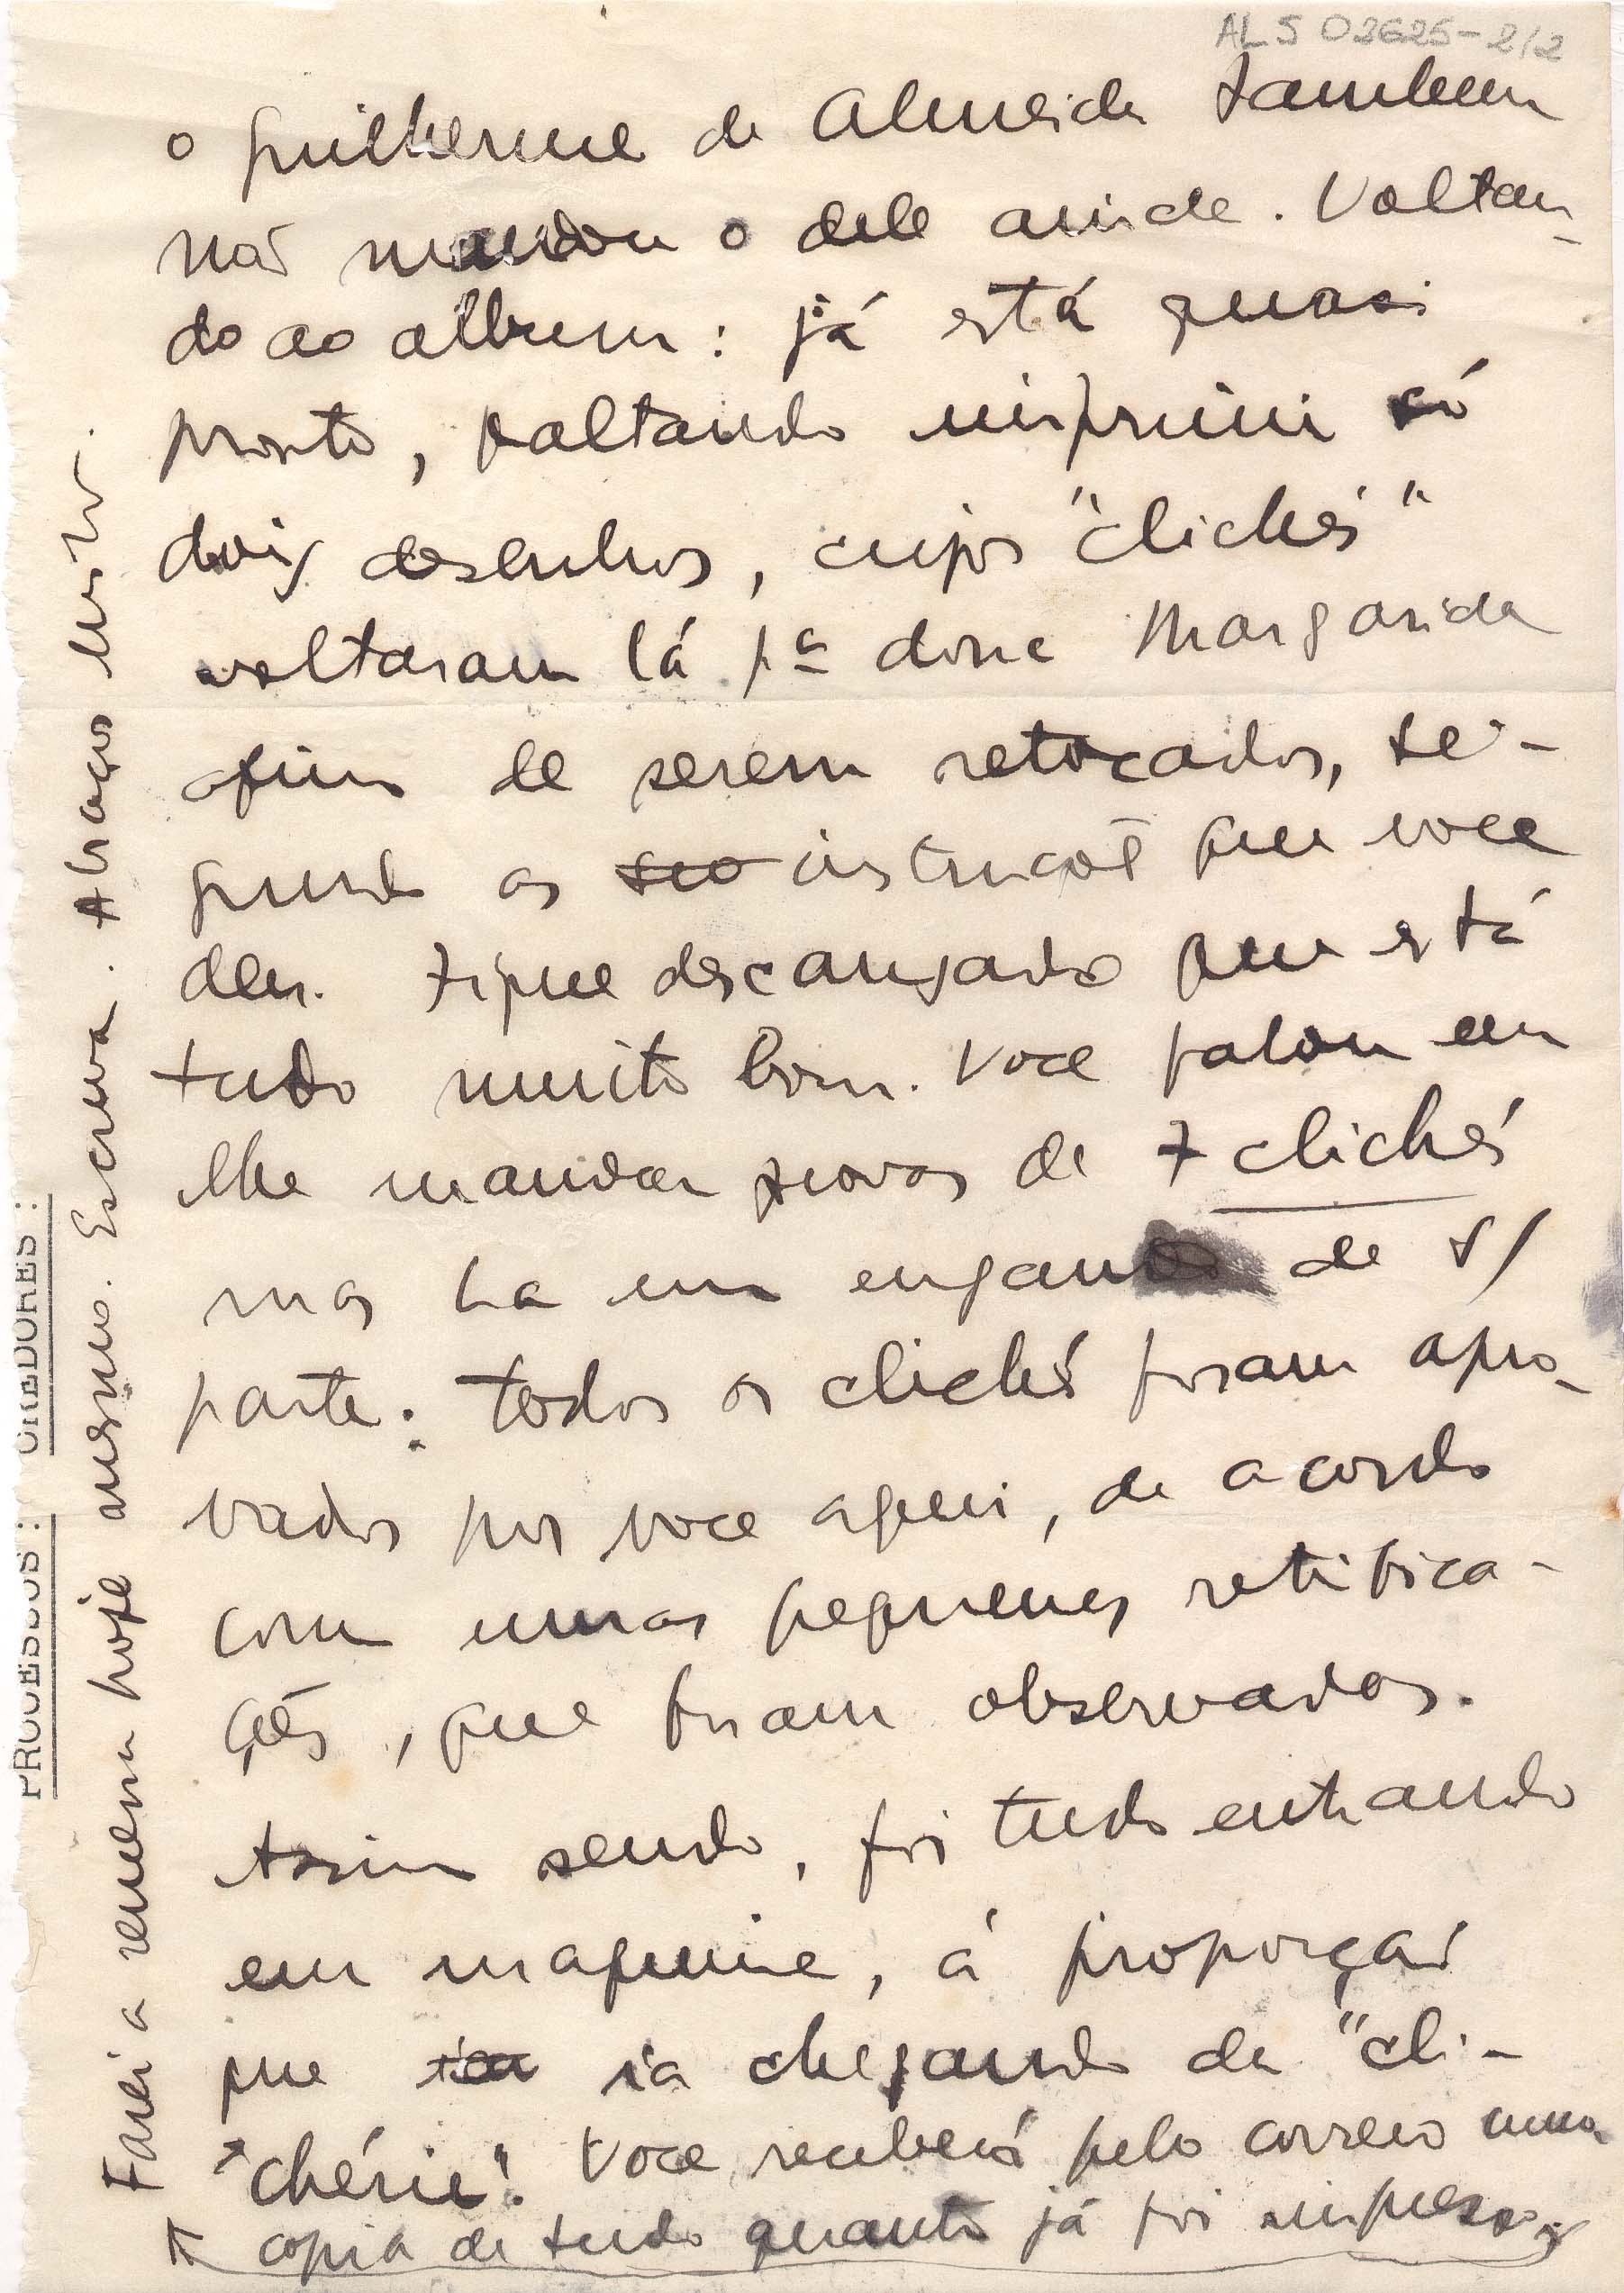 ALS 03625-2/2
o Guilherme de Almeida tambem
não mandou o dele ainda. Voltan-
do ao album: já está quasi
pronto, faltando imprimir só
dois desenhos, cujos "clichés"
voltaram lá pª dona Margarida
afim de serem retocados, se-
gundo as instruções que voce
deu. Fique descançado que está
tudo muito bom. Voce falou em
lhe mandar provas de 7 clichés
mas ha um engano de s/
parte: todos os clichés foram apro-
vados por voce aqui, de acordo
com umas pequenas retifica-
ções, que foram observadas.
Assim sendo, foi tudo entrando
em maquina, á proporção
que ia ia chegando da "cli-
"chérie". Voce receberá pelo correio uma
copia de tudo quanto já foi impresso,
Farei a remessa hoje mesmo. Escreva. Abraços
PROCESSOS: CREDORES: